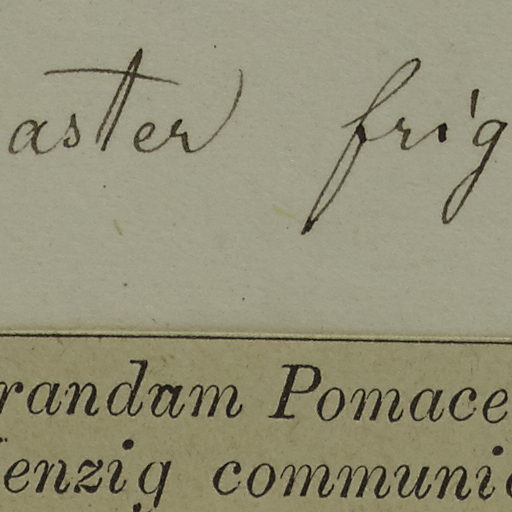 aster frig
randam Pomace
enzig communi